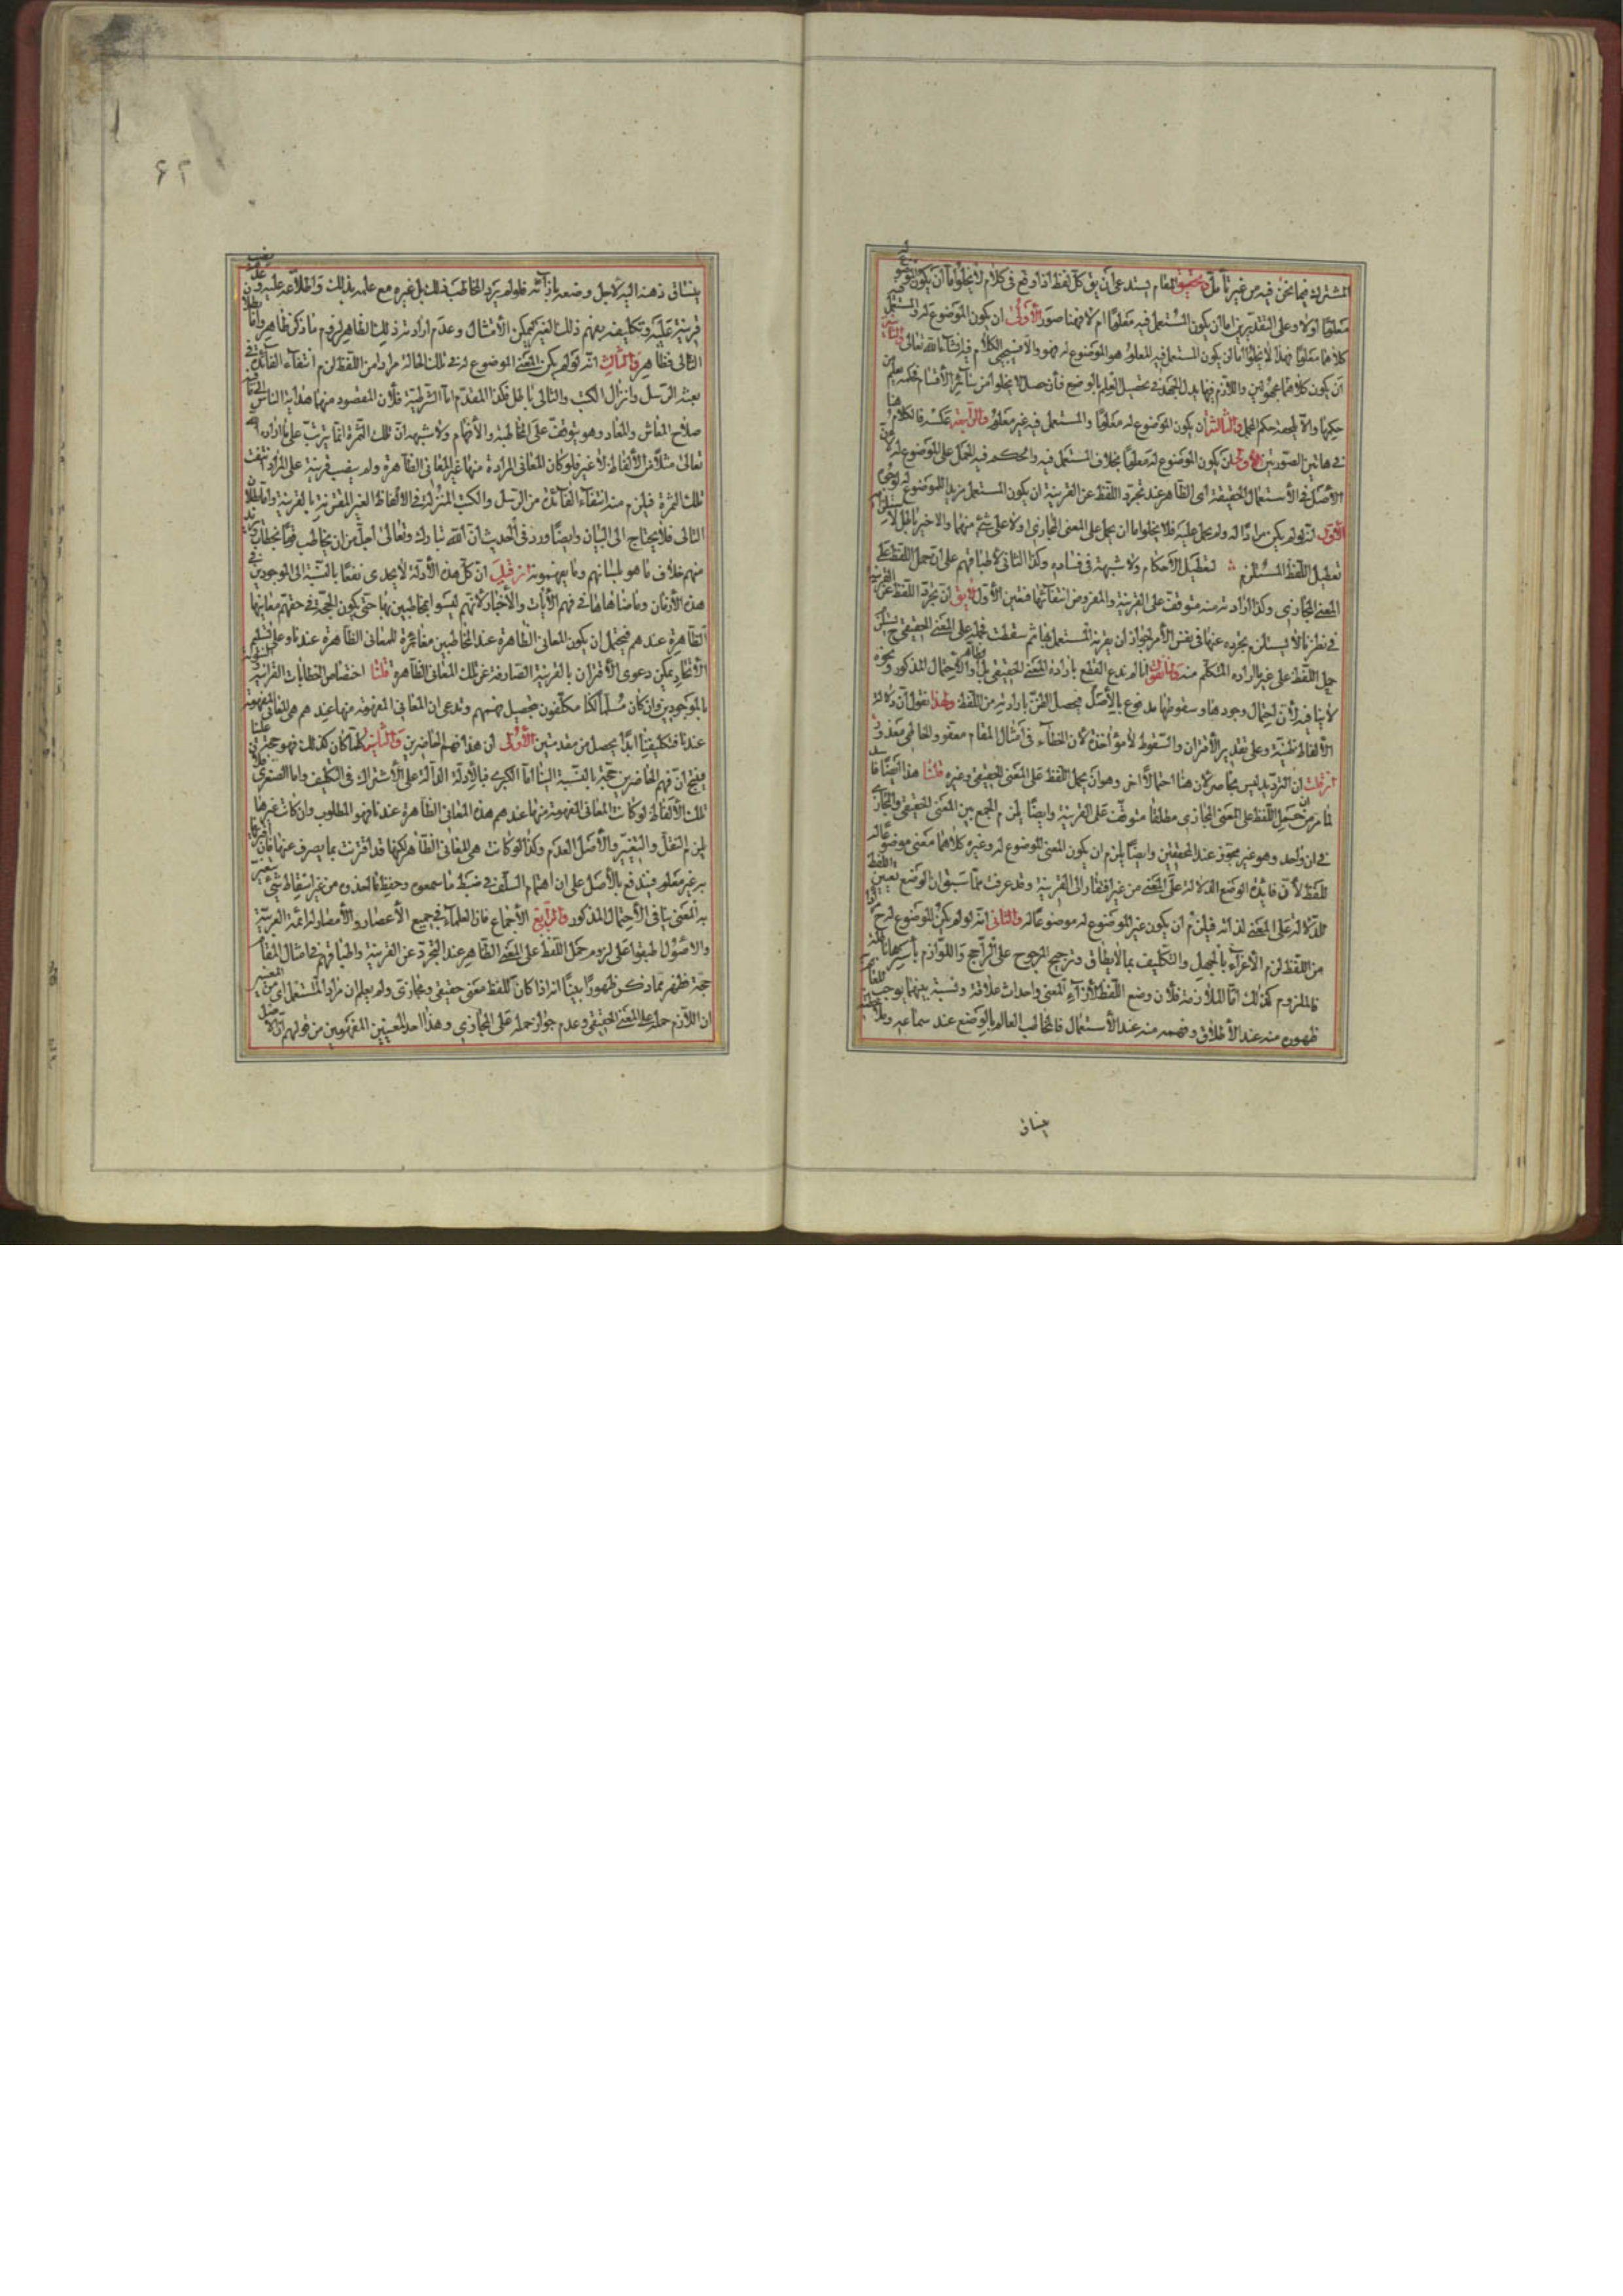 المشترك فيما نحن فيه من غير تأمل وتحقيق المقام يستدعى ان يق كل لفظ اذا وقع فى كلام لا يخلو اما ان يكون الموضوع له
معلومًا اولا وعلى التقديرين اما ان يكون المستعمل فيه معلومًا ام لا فهنا صور الأولى ان يكون الموضوع له والمستعمل فيه
كلاهما معلومًا فهذا لا يخلو اما ان يكون المستعمل فيه المعلوم هو الموضوع له فهو والا فسيجئ الكلام فيه انشاء الله تعالى والثانية
ان يكون كلاهما مجهولين واللازم فيها بذل الجهد فى تحصيل العلم بالوضع فان حصل لا يخلو من سائر الأقسام فحكمه يعلم من
حكمها والا يلحقه حكم المجمل والثالثة ان يكون الموضوع له معلومًا والمستعمل فيه غير معلوم والرابعة عكسه فالكلام هنا
فى هاتين الصورتين الأولى ان يكون الموضوع له معلومًا بخلاف المستعمل فيه والحكم فيه الحمل على الموضوع له لأن
الأصل فى الأستعمال الحقيقة اى الظاهر عند تجرد اللفظ عن القرينة ان يكون المستعمل مريدا للموضوع له لوجوه
الأول انه لو لم يكن مرادًا له ولم يحمل عليه فلا يخلو اما ان يحمل على المعنى المجازى اولا على شئ منهما والاخير باطل لاستلزامه
تعطيل اللفظ المستلزم لتعطيل الأحكام ولا شبهة فى فساده وكذا الثانى لاطباقهم على ان حمل اللفظ على
المعنى المجازى وكذا ارادته منه متوقف على القرينة والمفروض انتفائها فتعين الأول لا يق ان تجرد اللفظ عن القرينة
فى نظرنا لا يستلزم تجرده عنها فى نفس الأمر لجواز ان يقرنه المستعمل بها ثم سقطت فحمله على المعنى الحقيقى ح يستلزم
حمل اللفظ على غير ما اراده المتكلم منه لانا نقول انا لم ندع القطع بارادة المعنى الحقيقى بل والاحتمال المذكور ونحوه
لا ينافيه لأن احتمال وجودها وسقوطها مدفوع بالأصل فيحصل الظن بارادته من اللفظ ولهذا نقول ان دلالة
الألفاظ ظنية وعلى تقدير الأقتران والسقوط لا مؤاخذة لان الخطاء فى امثال المقام معفو والخاطى معذور
ان قلت ان الترديد ليس بحاصر لان هنا احتمالًا اخر وهو ان يحمل اللفظ على المعنى الحقيقى وغيره قلنا هذا ايضًا فاسد
لما مر من ان حمل اللفظ على المعنى المجازى مطلقًا متوقف على القرينة وايضًا يلزم الجمع بين المعنى الحقيقى والمجازى
فى ان واحد وهو غير مجوز عند المحققين وايضًا يلزم ان يكون المعنى الموضوع له وغيره كلاهما معنى موضوعًا له
للفظ لأن فايدة الوضع الدلالة على المعنى من غير افتقار الى القرينة وقد عرفت مما سبق ان الوضع تعيين اللفظ
للدلالة على المعنى لذاته فيلزم ان يكون غير الموضوع له موضوعًا له والثانى انه لو لم يكن الموضوع له ح مرادا
من اللفظ لزم الأغراء بالجهل والتكليف بما لا يطاق وترجيح المرجوح على الراجح واللوازم بأسرها باطلة
فالملزوم كذلك اما الملازمة فلأن وضع اللفظ لأزاء المعنى واحداث علاقة ونسبة بينهما يوجب
ظهوره منه عند الأطلاق وفهمه منه عند الأستعمال فالمخاطب العالم بالوضع عند سماعه
ينساق
ينساق ذهنه اليه لأجل وضعه بازائه فلو لم يرد المخاطب ذلك بل غيره مع علمه بذلك واطلاعه عليه
قرينة عليه وتكليفه بفهم ذلك الغير لم يمكن الأمتثال وعدم ارادته ذلك الظاهر لزوم ما ذكر ظاهر واما بطلان
التالى فظاهر والثالث انه لو لم يكن المعنى الموضوع له فى تلك الحالة مرادا من اللفظ لزم انتفاء الفائدة فى
بعثة الرسل وانزال الكتب والتالى باطل فكذا المقدم اما الشرطية فلأن المقصود منها هداية الناس
صلاح المعاش والمعاد وهو يتوقف على المخاطبة والأفهام ولا شبهة ان تلك الثمرة انما يترتب على ما اراده الله
تعالى مثلًا من الألفاظ لا غير فلو كان المعانى المرادة منها غير المعانى الظاهرة ولم ينصب قرينة على المراد انتفت
تلك الثمرة فيلزم منه انتفاء الفائدة من الرسل والكتب المنزلة فى الألفاظ الغير المقترنة بالقرينة واما بطلان
التالى فلا يحتاج الى البيان وايضًا ورد فى الحديث ان الله تبارك وتعالى اجل من ان يخاطب قومًا بخطاب ويريد
منهم خلاف ما هو بلسانهم وما يفهمونه ان قيل ان كل هذه الأدلة لا يجدى نفعًا بالنسبة الى الموجودين فى
هذه الأزمان وما ضاهاها فى فهم الأيات والأخبار لأنهم ليسوا بمخاطبين بها حتى يكون الحجة فى حقهم معانيها
الظاهرة عندهم فيحتمل ان يكون المعانى الظاهرة عند المخاطبين مغائرة للمعانى الظاهرة عندنا وعلى تسليم
الأتحاد يمكن دعوى الأقتران بالقرينة الصارفة عن تلك المعانى الظاهرة قلنا اختصاص الخطابات القرانية
بالموجودين وان كان مسلمًا لكنا مكلفون بتحصيل فهمهم وندعى ان المعانى المفهومة منها عندهم هى المعانى المفهومة
عندنا فتكليفنا ابدًا يحصل من مقدمتين الأولى ان هذا فهم الحاضرين والثانية كلما كان كذلك فهو حجة علينا
ينتج ان فهم الحاضرين حجة بالنسبة الينا اما الكبرى فبالأدلة الدالة على الأشتراك فى التكليف واما الصغرى فلأن
تلك الألفاظ لو كانت المعانى المفهومة منها عندهم هذه المعانى الظاهرة عندنا فهو المطلوب وان كانت غيرها
يلزم النقل والتغيير والأصل العدم وكذا لو كانت هى المعانى الظاهرة لكنها قد اقترنت بما يصرف عنها فان اقترانها
به غير معلوم فيندفع بالأصل على ان اهتمام السلف فى ضبط ما سمعوه وحفظ ما اخذوه من غير اسقاط شئ يتغير
به المعنى ينافى الأحتمال المذكور والرابع الأجماع فان العلماء فى جميع الأعصار والأمصار من ائمة العربية
والاصول طبقوا على لزوم حمل اللفظ على المعنى الظاهر عند التجرد عن القرينة واطباقهم فى امثال المقام
حجة فظهر مما ذكر ظهورًا بينًا انه اذا كان للفظ معنى حقيقى ومجازى ولم يعلم ان مراد المستعمل اى من المعنيين
ان اللازم حمله على المعنى الحقيقى وعدم جواز حمله على المجازى وهذا احد المعنيين المفهومين من قولهم ان الأصل